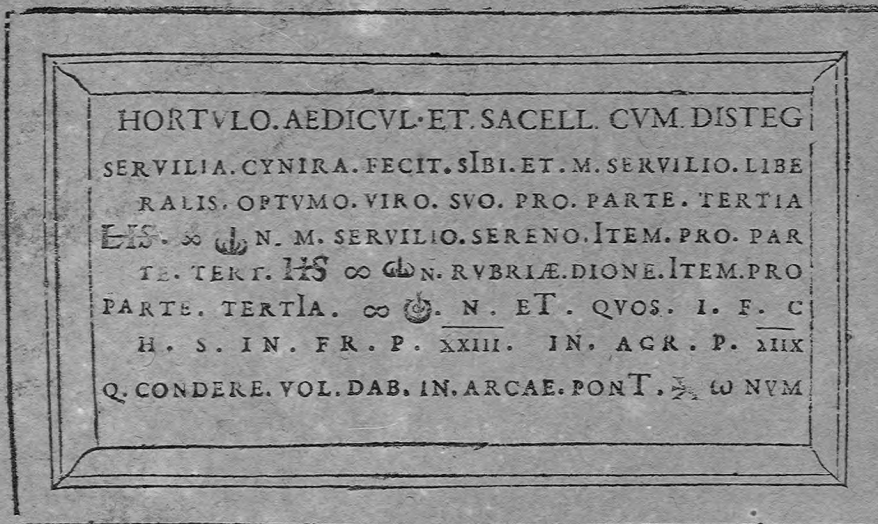 HORTVLO. AEDICVL·ET. SACELL. CVM. DISTEG
SERVILIA. CYNIRA. FECIT. SIBI. ET. M. SERVILIO. LIBE
RALIS. OPTVMO. VIRO. SVO. PRO. PARTE. TERTIA
∞ N. M. SERVILIO. SERENO. ITEM. PRO. PAR
TE. TERT. HS ∞ N. RVBRIÆ. DIONE. ITEM. PRO
PARTE. TERTIA. ∞ . N . ET . QVOS. I. F. C
H . S . IN . FR . P . XXIII. IN. AGR . P. XIIX
Q. CONDERE. VOL. DAB. IN. ARCAE. PONT. NVM